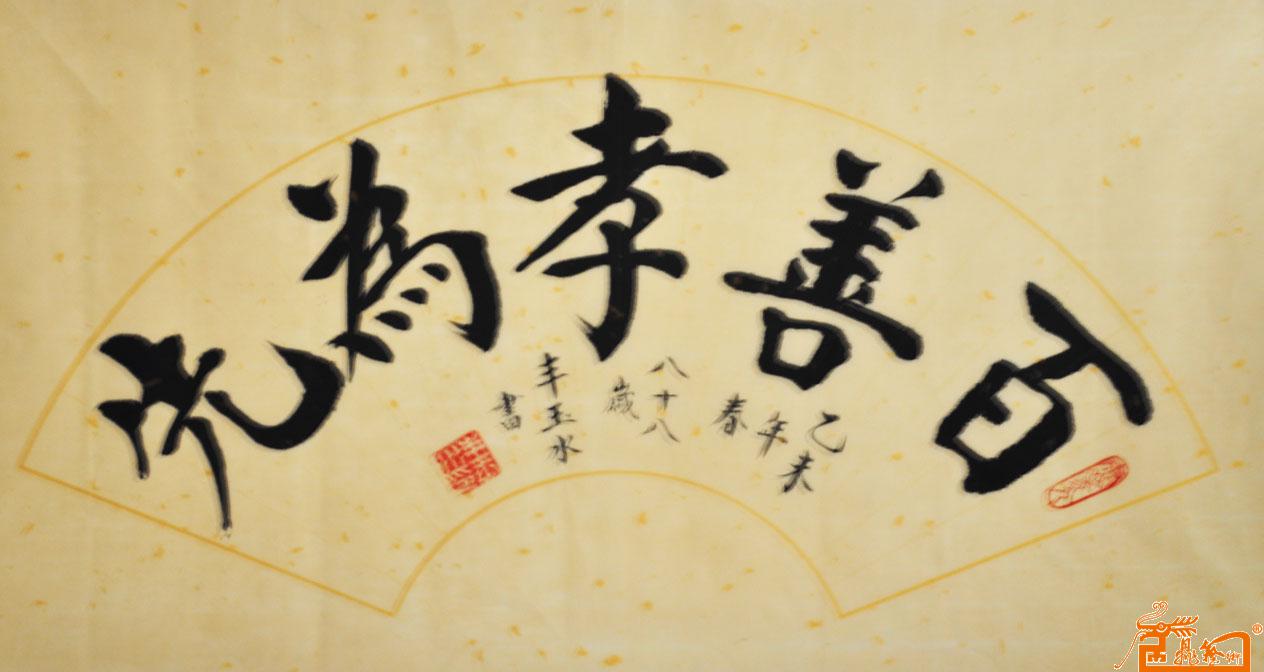 百善孝為先
乙未
年
春
八十八
歲
丰玉水
書